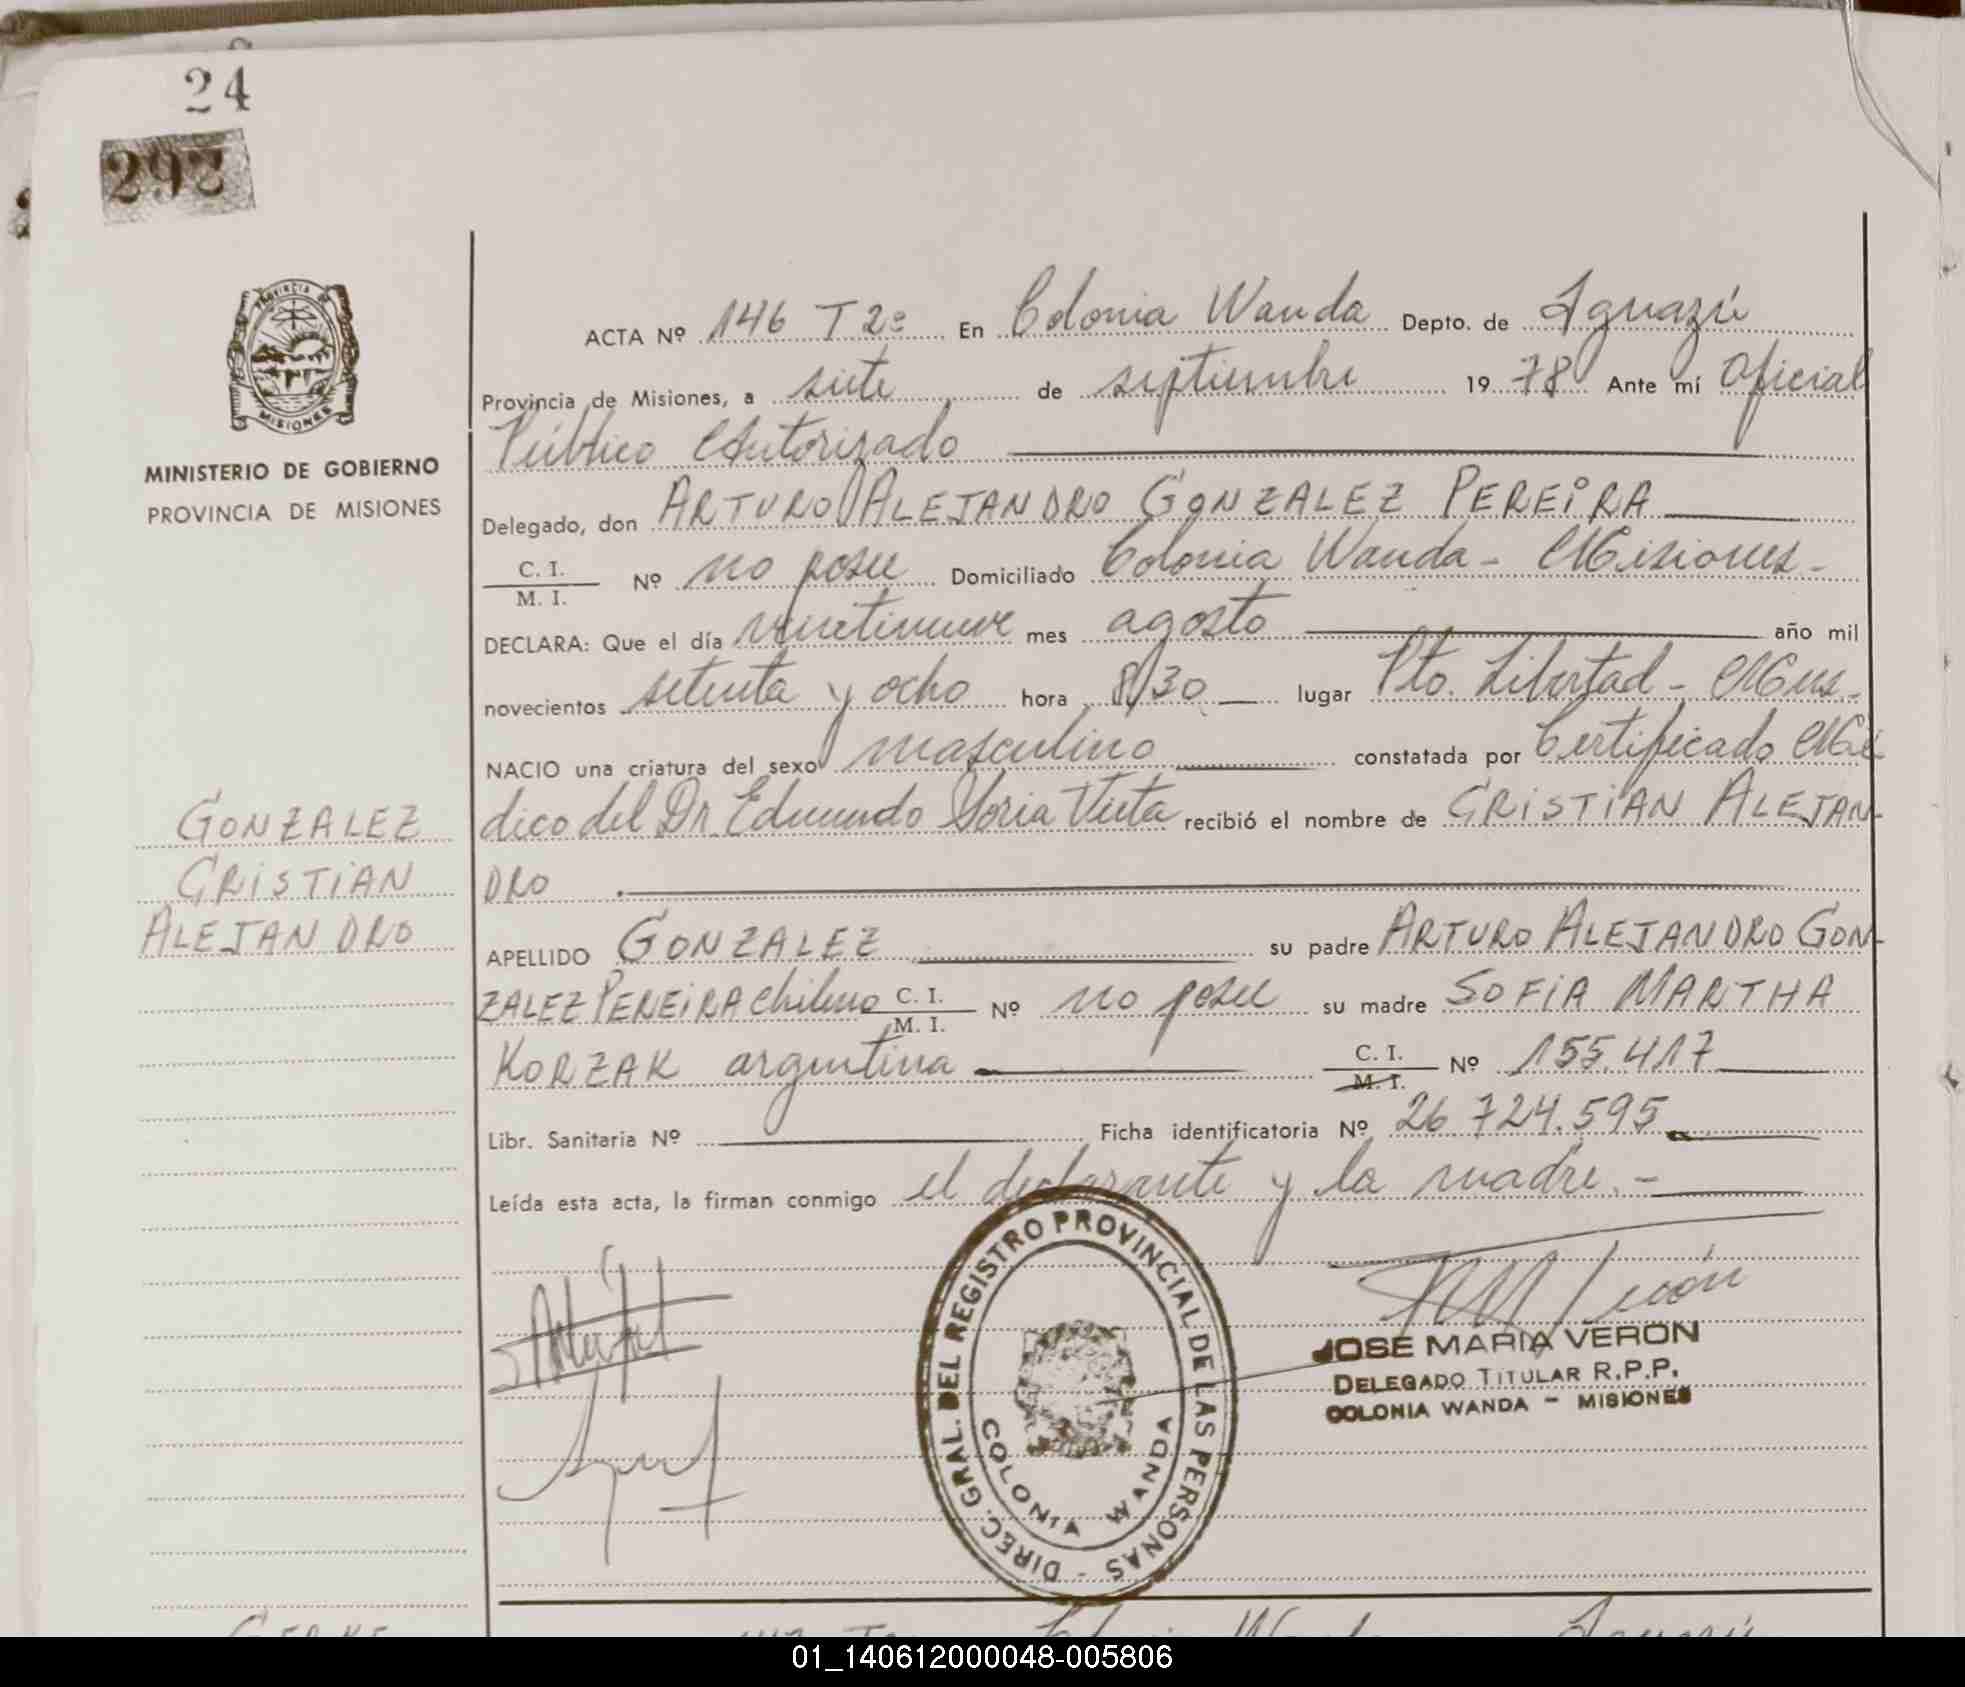 24
297
PROVINCIA DE
MISIONES
MINISTERIO DE GOBIERNO
PROVINCIA DE MISIONES
GONZALEZ
CRISTIAN
ALEJANDRO
ACTA Nº 146 T 2º En Colonia Wanda Depto. de Iguazú
Provincia de Misiones, a siete de septiembre 19 78 Ante mí Oficial
Público Autorizado
Delegado, don ARTURO ALEJANDRO GONZALEZ PEREIRA
C. I.
M. I. Nº no posee Domiciliado Colonia Wanda - Misiones -
DECLARA: Que el día veintinueve mes agosto año mil
novecientos setenta y ocho hora 8/30 lugar Pto. Libertad - Mnes.
NACIO una criatura del sexo masculino constatada por Certificado Mé
dico del Dr. Edmundo Soria Vieta recibió el nombre de CRISTIAN ALEJAN-
DRO
APELLIDO GONZALEZ su padre ARTURO ALEJANDRO GON-
ZALEZ PEREIRA chileno C. I. M. I. Nº no posee su madre SOFIA MARTHA
KORZAK argentina C. I. M. I. Nº 155.417
Libr. Sanitaria Nº Ficha identificatoria Nº 26 724.595
Leída esta acta, la firman conmigo el declarante y la madre. -
DIREC. GRAL. DEL REGISTRO PROVINCIAL DE LAS PERSONAS -
COLONIA WANDA
JOSE MARIA VERON
DELEGADO TITULAR R.P.P.
COLONIA WANDA - MISIONES
01_140612000048-005806